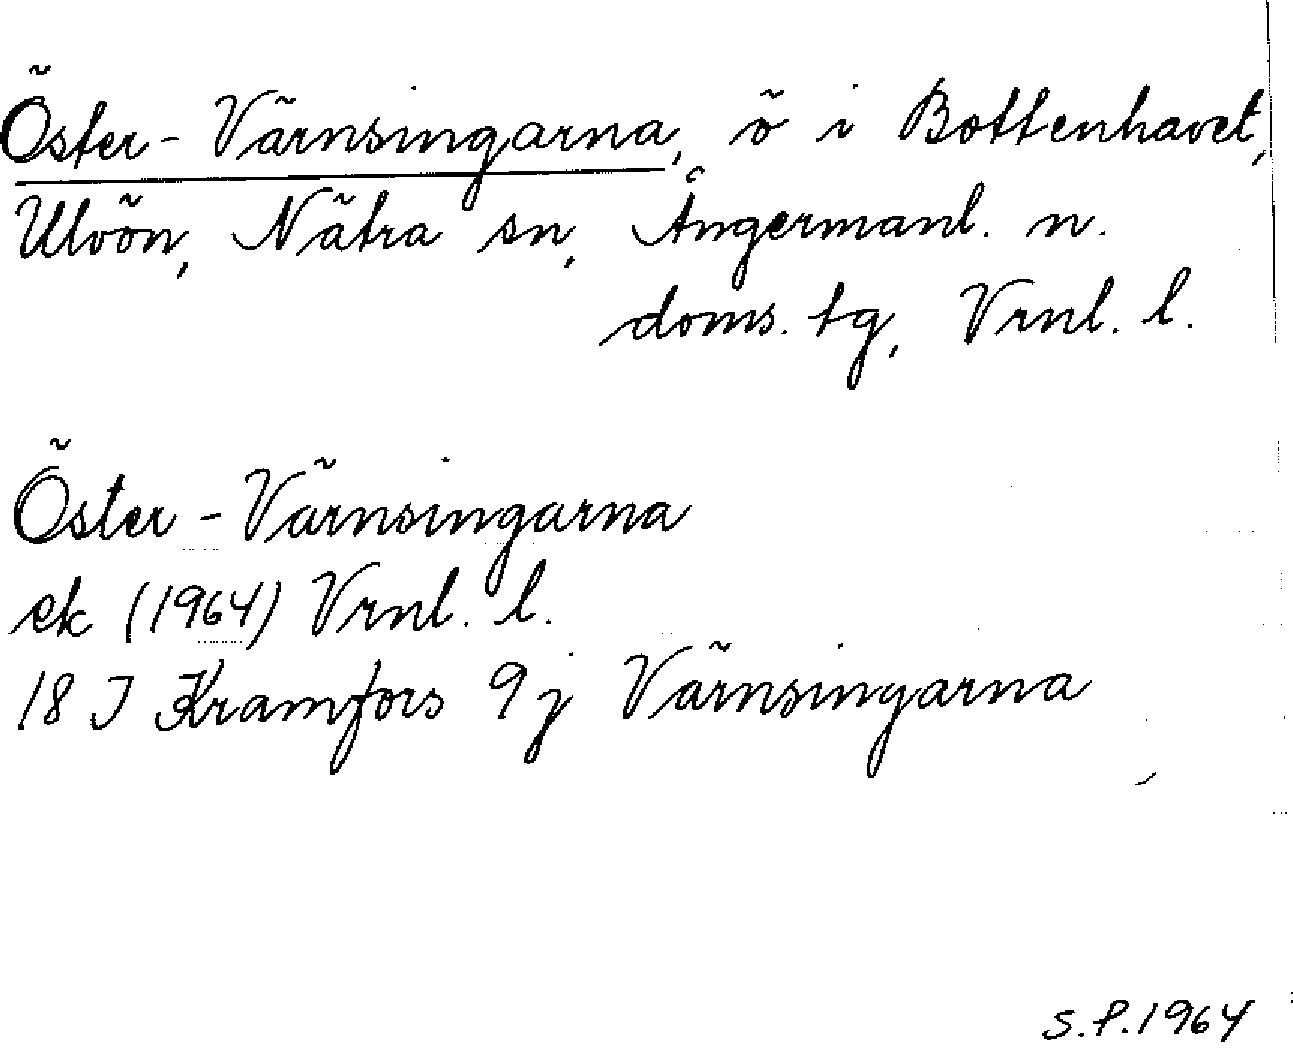 Öster-Värnsingarna, ö i Bottenhavet,
Ulvön, Nätra sn, Ångermanl. n.
doms. tg, Vrnl. l.
Öster-Värnsingarna
ek (1964) Vrnl. l.
18 J Kramfors 9j Värnsingarna
S.P. 1964